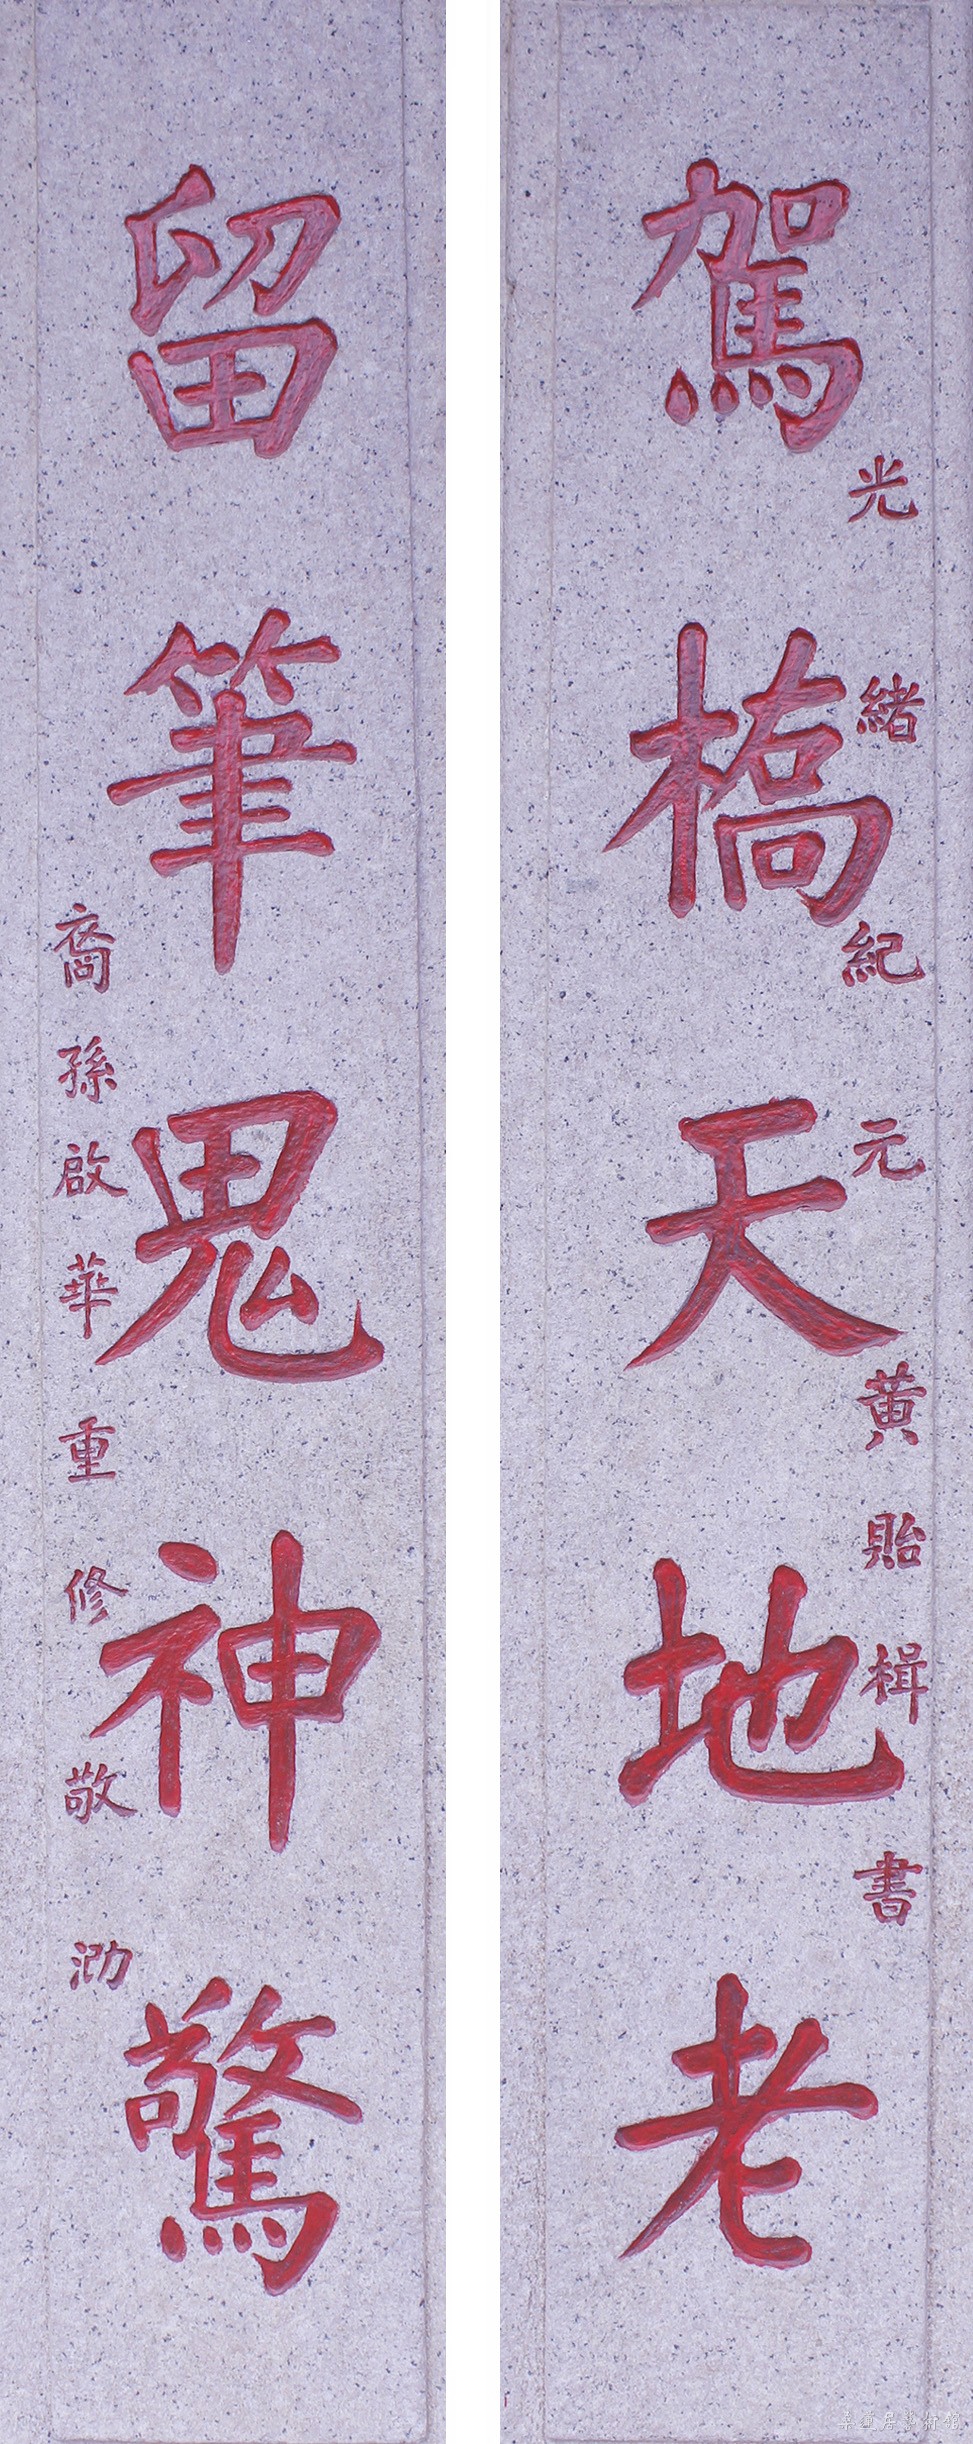 駕橋天地老
光緒紀元
黃貽楫書
留筆鬼神驚
裔孫啟華重修敬泐